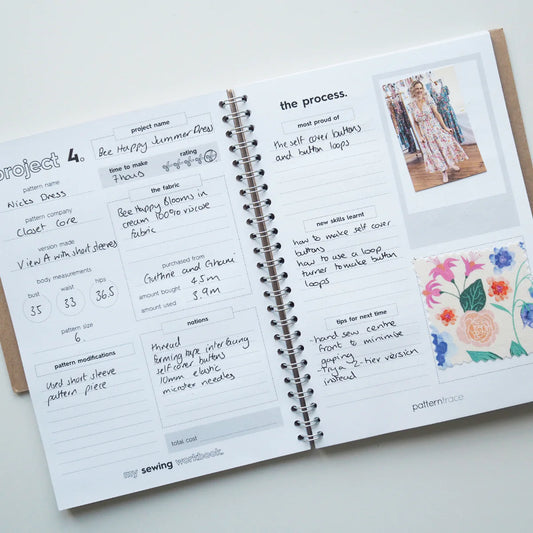 project 4.
project name
Bee Happy Summer Dress
pattern name
Nicks Dress
time to make
7 hours
rating
pattern company
Closet Core
the fabric
Bee Happy Blooms in
cream 100% viscose
fabric
version made
View A with short sleeves
body measurements
bust
waist
hips
35
33
36.5
purchased from
Guthrie and Ghani
amount bought
4.5m
amount used
3.9m
pattern size
6
notions
thread
forming tape interfacing
self cover buttons
10mm elastic
microtex needles
pattern modifications
Used short sleeve
pattern piece
total cost
my sewing workbook.
the process.
most proud of
the self cover buttons
and button loops
new skills learnt
how to make self cover
buttons
how to use a loop
turner to make button
loops
tips for next time
- hand sew centre
front to minimise
gaping
- try a 2-tier version
instead
patterntrace.